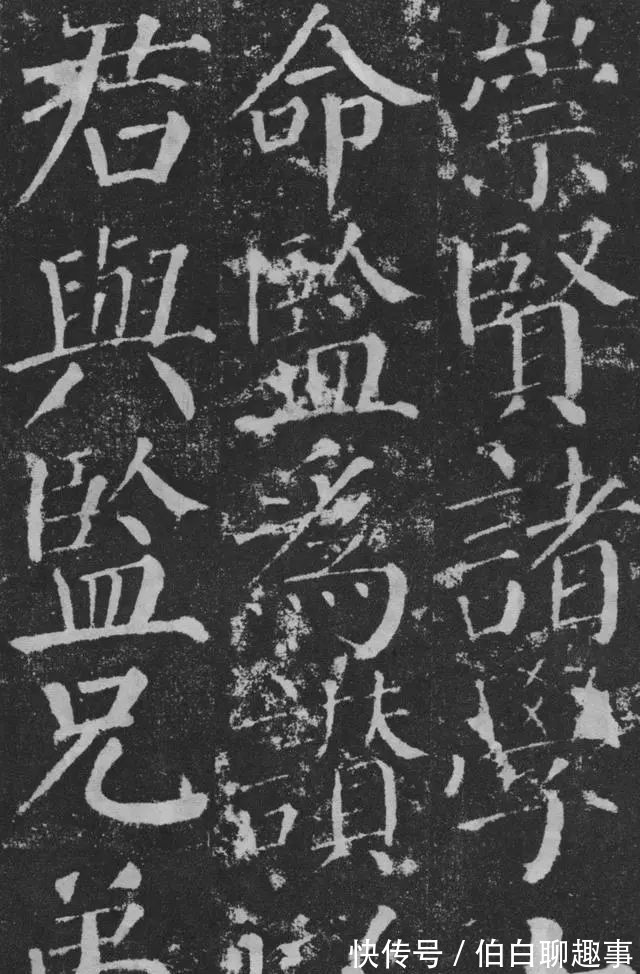 崇賢諸學
命監為讃
君與監兄弟
快传号/伯白聊趣事